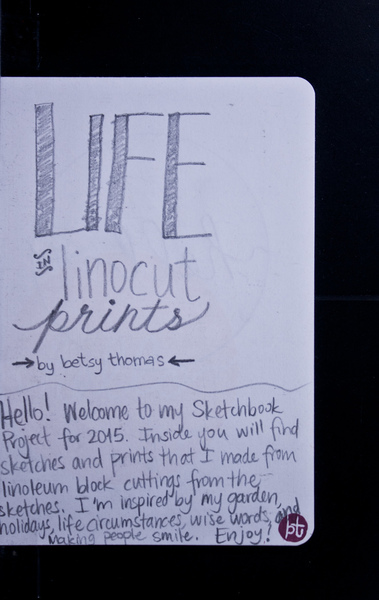 LIFE
in linocut
prints
by betsy thomas
Hello! Welcome to my Sketchbook
Project for 2015. Inside you will find
sketches and prints that I made from
linoleum block cuttings from the
sketches. I'm inspired by my garden,
holidays, life circumstances, wise words, and
making people smile. Enjoy!
pt